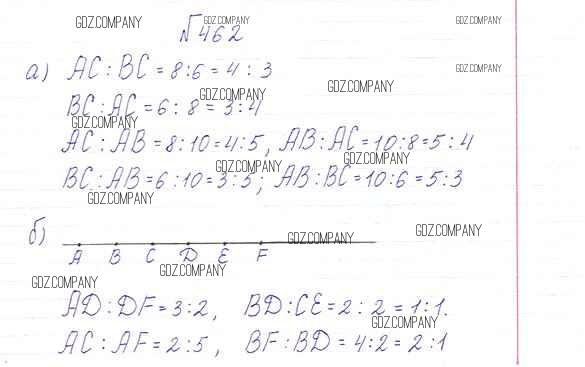 GDZ.COMPANY GDZ.COMPANY GDZ.COMPANY
№462
а) AC : BC = 8:6 = 4 : 3 GDZ.COMPANY
GDZ.COMPANY GDZ.COMPANY
BC : AC = 6 : 8 = 3 : 4
GDZ.COMPANY
AC : AB = 8:10 = 4:5, AB : AC = 10:8 = 5:4
GDZ.COMPANY GDZ.COMPANY
BC : AB = 6:10 = 3:5; AB : BC = 10:6 = 5:3
GDZ.COMPANY
б) GDZ.COMPANY GDZ.COMPANY
A B C D E F
GDZ.COMPANY
GDZ.COMPANY
AD : DF = 3:2, BD : CE = 2 : 2 = 1:1.
GDZ.COMPANY
AC : AF = 2:5, BF : BD = 4:2 = 2:1